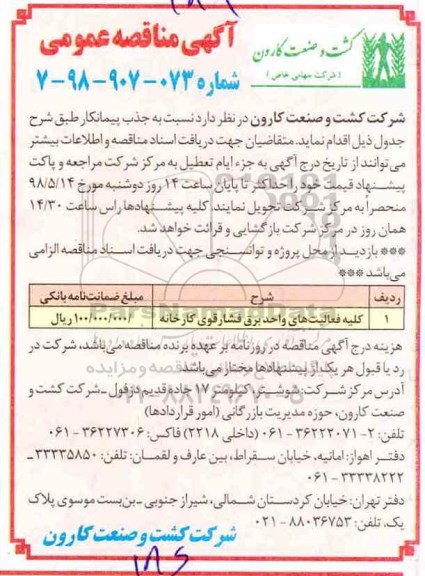 کشت و صنعت کارون
(شرکت سهامی خاص)
آگهی مناقصه عمومی
شماره ۰۷۳-۹۰۷-۹۸-۷
شرکت کشت و صنعت کارون در نظر دارد نسبت به جذب پیمانکار طبق شرح
جدول ذیل اقدام نماید. متقاضیان جهت دریافت اسناد مناقصه و اطلاعات بیشتر
می‌توانند از تاریخ درج آگهی به جزء ایام تعطیل به مرکز شرکت مراجعه و پاکت
پیشنهاد قیمت خود را حداکثر تا پایان ساعت ۱۴ روز دوشنبه مورخ ۹۸/۵/۱۴
منحصراً به مرکز شرکت تحویل نمایند. کلیه پیشنهادها راس ساعت ۱۴/۳۰
همان روز در مرکز شرکت بازگشایی و قرائت خواهد شد.
*** بازدید از محل پروژه و توانسنجی جهت دریافت اسناد مناقصه الزامی
می‌باشد ***
ردیف شرح مبلغ ضمانت‌نامه بانکی
۱ کلیه فعالیت‌های واحد برق فشار قوی کارخانه ۱۰۰/۰۰۰/۰۰۰/ ریال
هزینه درج آگهی مناقصه در روزنامه بر عهده برنده مناقصه می‌باشد، شرکت در
رد یا قبول هر یک از پیشنهادها مختار می‌باشد.
آدرس مرکز شرکت: شوشتر، کیلومتر ۱۷ جاده قدیم دزفول - شرکت کشت و
صنعت کارون، حوزه مدیریت بازرگانی (امور قراردادها)
تلفن: ۲-۳۶۲۲۲۰۷۱-۰۶۱ (داخلی ۲۲۱۸) فاکس: ۳۶۲۲۷۳۰۶-۰۶۱
دفتر اهواز: امانیه، خیابان سقراط، بین عارف و لقمان: تلفن: ۳۳۳۳۵۸۵۰-
۳۳۳۳۸۲۲۲-۰۶۱
دفتر تهران: خیابان کردستان شمالی، شیراز جنوبی - بن‌بست موسوی پلاک
یک، تلفن: ۸۸۰۳۶۷۵۳-۰۲۱
شرکت کشت و صنعت کارون